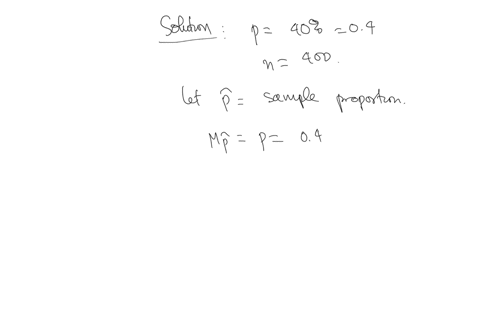 Solution: p = 40% = 0.4
n = 400.
let p̂ = sample proportion.
Mp̂ = p = 0.4